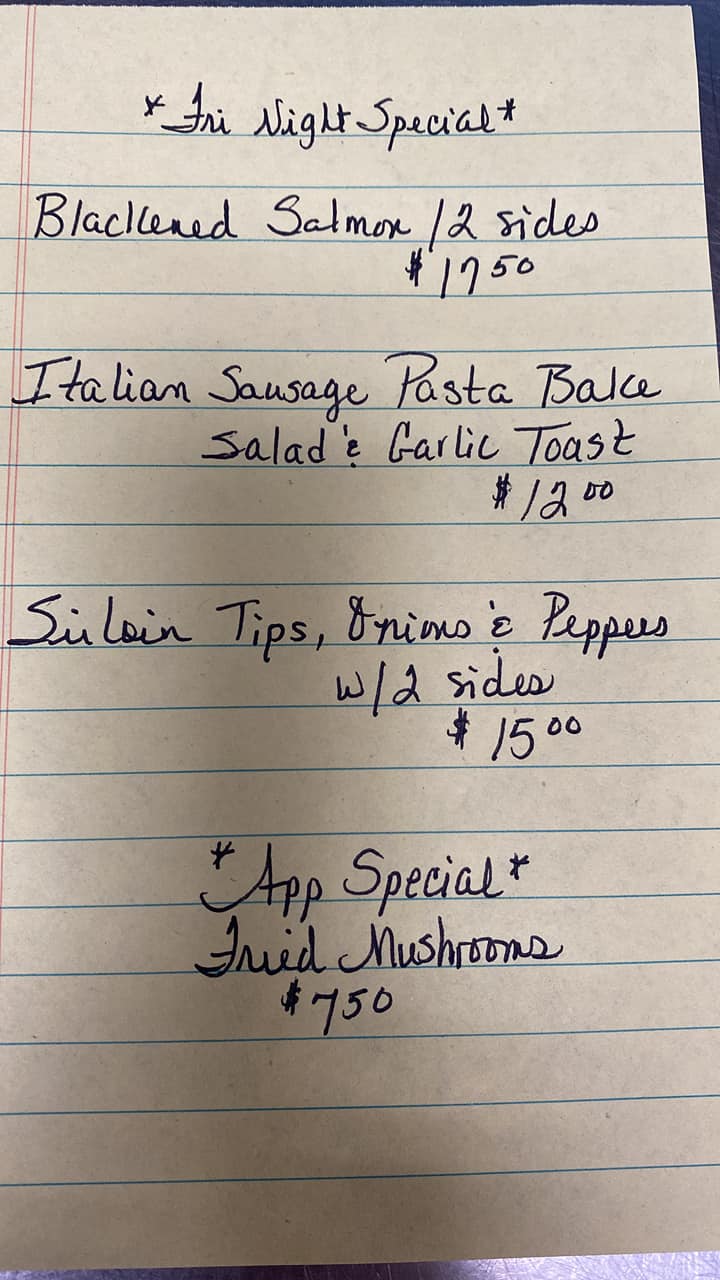 *Fri Night Special*
Blackened Salmon /2 sides
$17 50
Italian Sausage Pasta Bake
Salad & Garlic Toast
$12 00
Sirloin Tips, Onions & Peppers
w/2 sides
$15 00
*App Special*
Fried Mushrooms
$7 50